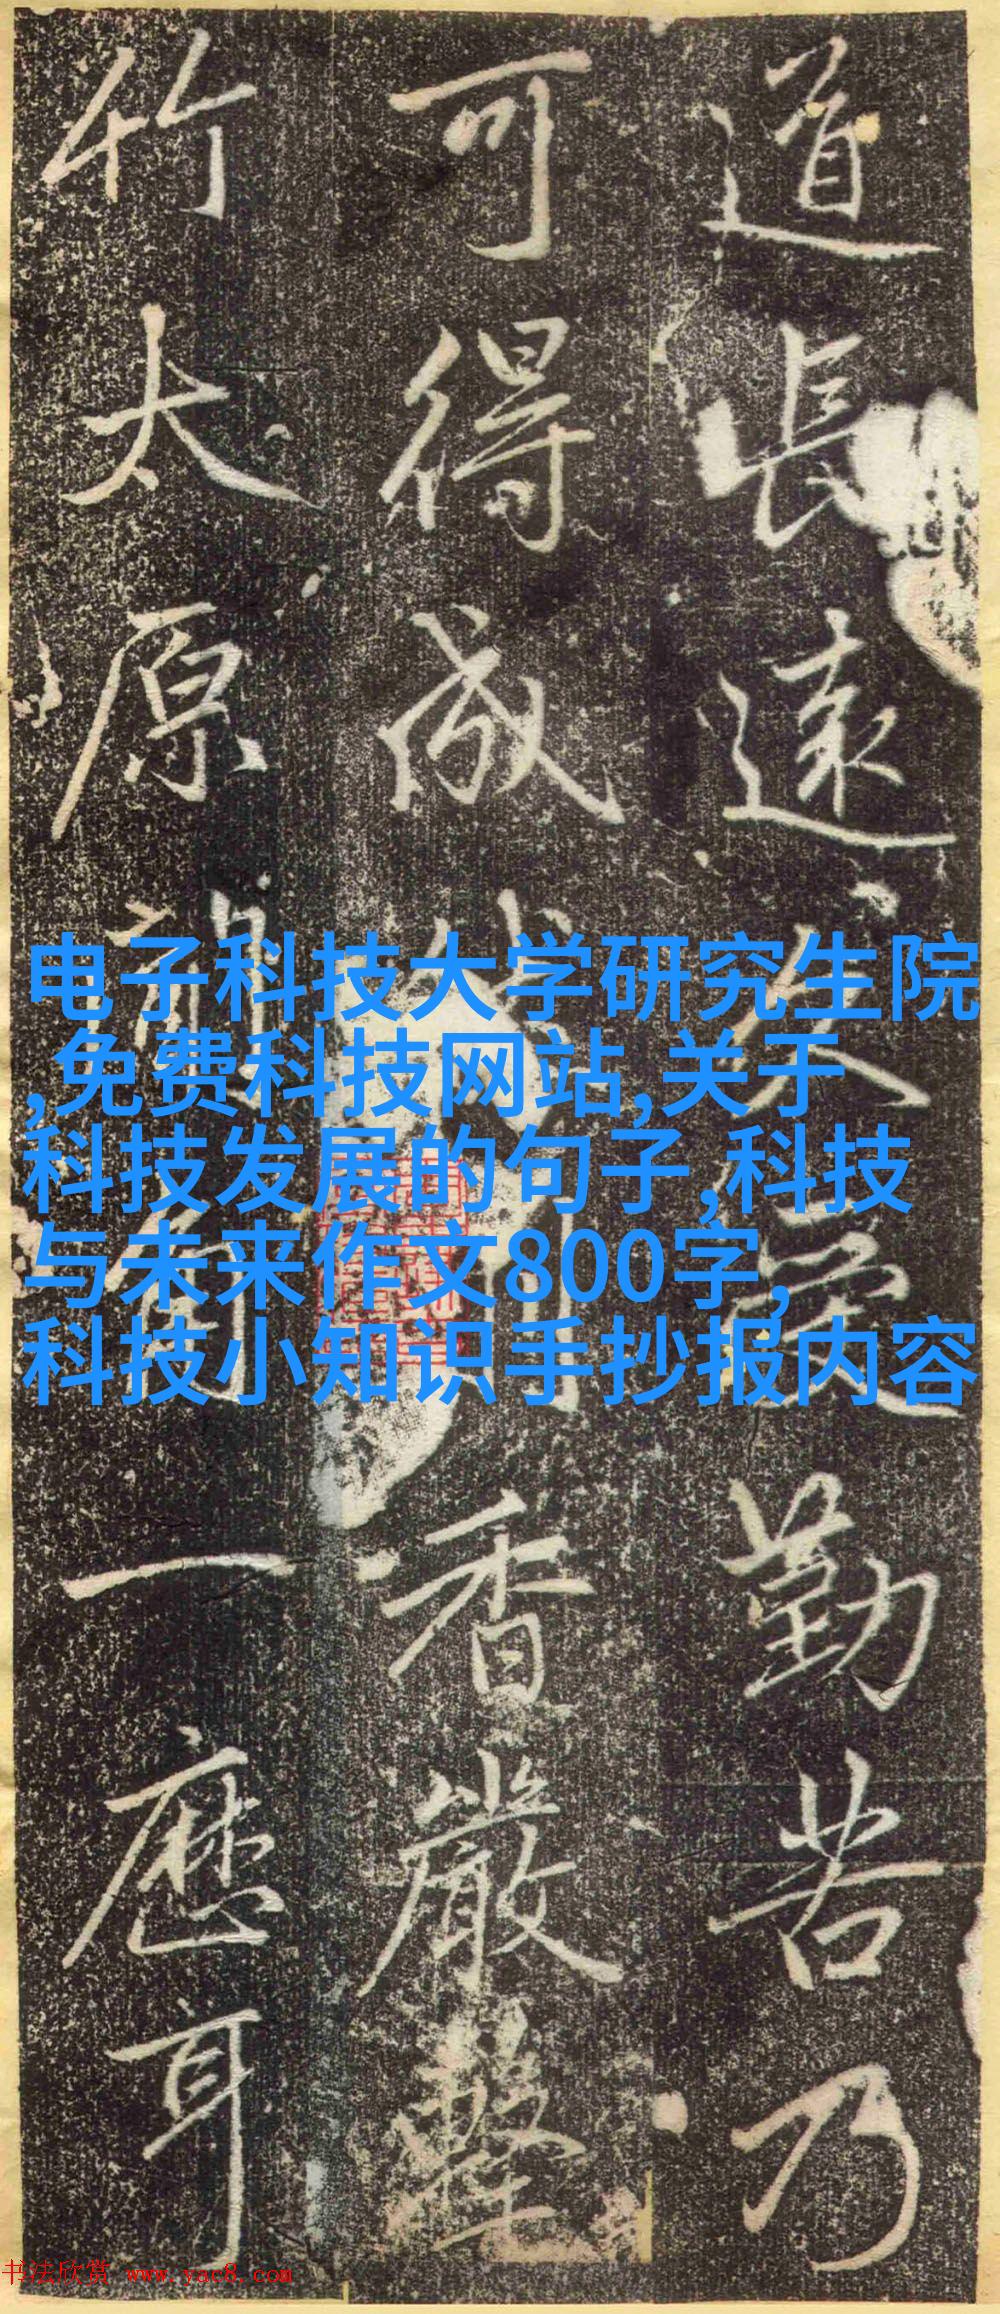 道長遠久受勤苦乃
可得成
香嚴擊
竹太原
一應耳
电子科技大学研究生院
,免费科技网站,关于
科技发展的句子,科技
与未来作文800字,
科技小知识手抄报内容
书法欣赏 www.yac8.com